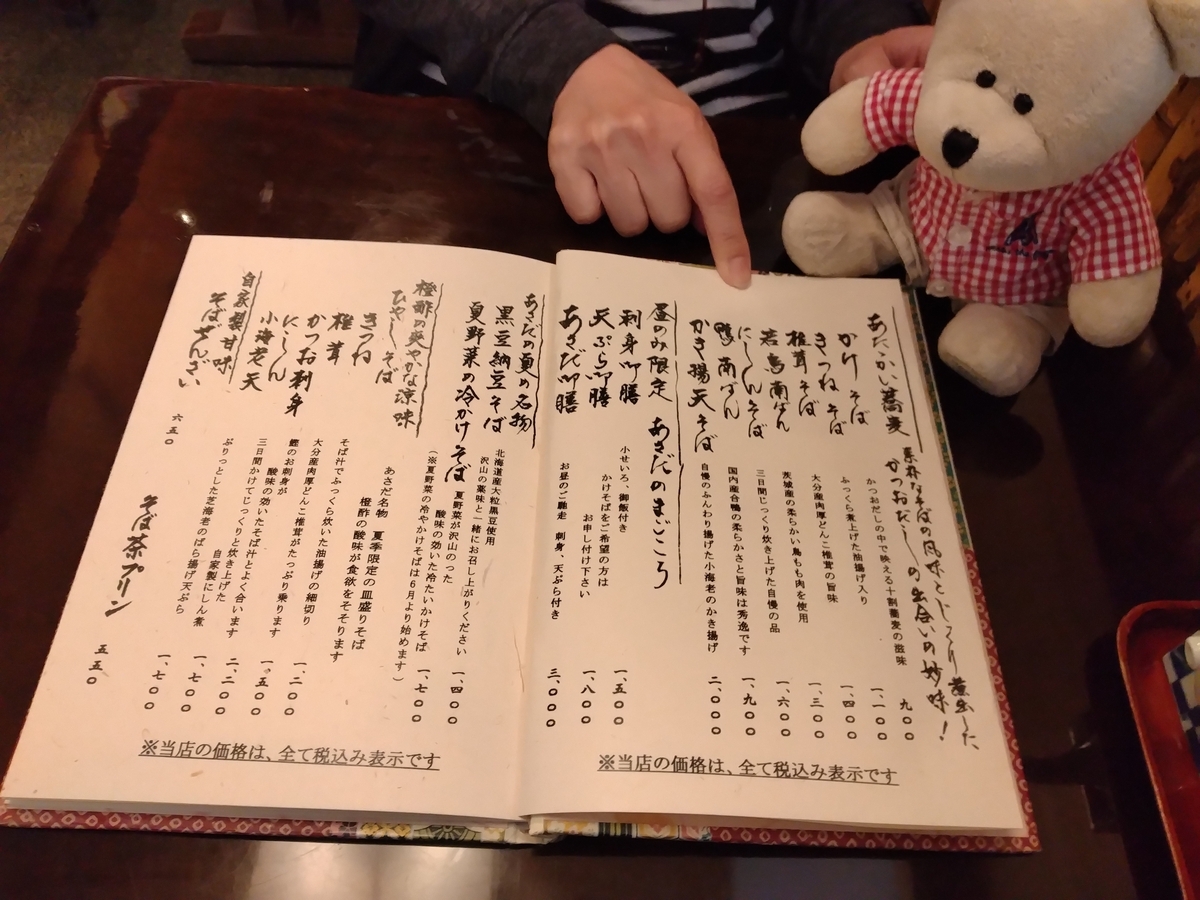 あたゝかい蕎麦
素朴なそばの風味とじっくり煮出した、
かつおだしの出合いの妙味！
かけそば かつおだしの中で映える十割蕎麦の滋味 九〇〇
きつねそば ふっくら煮上げた油揚げ入り 一、一〇〇
椎茸そば 大分産肉厚どんこ椎茸の旨味 一、四〇〇
若鳥南ばん 茨城産の柔らかい鳥もも肉を使用 一、三〇〇
にしんそば 三日間じっくり炊き上げた自慢の品 一、六〇〇
鴨南ばん 国内産合鴨の柔らかさと旨味は秀逸です 一、九〇〇
かき揚天そば 自慢のふんわり揚げた小海老のかき揚げ 二、〇〇〇
昼のみ限定 あさだのまごころ
刺身御膳 小せいろ、御飯付き 一、五〇〇
天ぷら御膳 かけそばをご希望の方は
お申し付け下さい 一、八〇〇
あさだ御膳 お昼のご馳走 刺身、天ぷら付き 三、〇〇〇
※当店の価格は、全て税込み表示です
あさだの夏の名物
黒豆納豆そば 北海道産大粒黒豆使用
沢山の薬味と一緒にお召し上がりください 一、四〇〇
夏野菜の冷かけそば 夏野菜が沢山のった
酸味の効いた冷たいかけそば 一、七〇〇
（※夏野菜の冷やかけそばは６月より始めます）
橙酢の爽やかな涼味
ひやしそば あさだ名物 夏季限定の皿盛りそば
橙酢の酸味が食欲をそそります
きつね そば汁でふっくら炊いた油揚げの細切り 一、二〇〇
椎茸 大分産肉厚どんこ椎茸がたっぷり乗ります 一、五〇〇
かつお刺身 鰹のお刺身が
酸味の効いたそば汁とよく合います 二、二〇〇
にしん 三日間かけてじっくりと炊き上げた
自家製にしん煮 一、七〇〇
小海老天 ぷりっとした芝海老のばら揚げ天ぷら 一、七〇〇
自家製甘味
そばぜんざい 六五〇
そば茶プリン 五五〇
※当店の価格は、全て税込み表示です